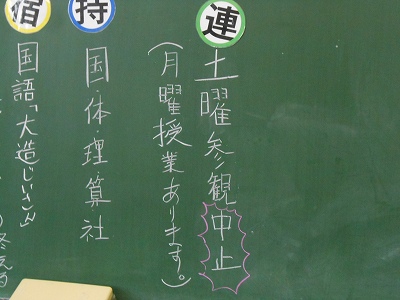 連
土曜参観中止
(月曜授業あります。)
持
国・体・理・算・社
宿
国語「大造じいさん」